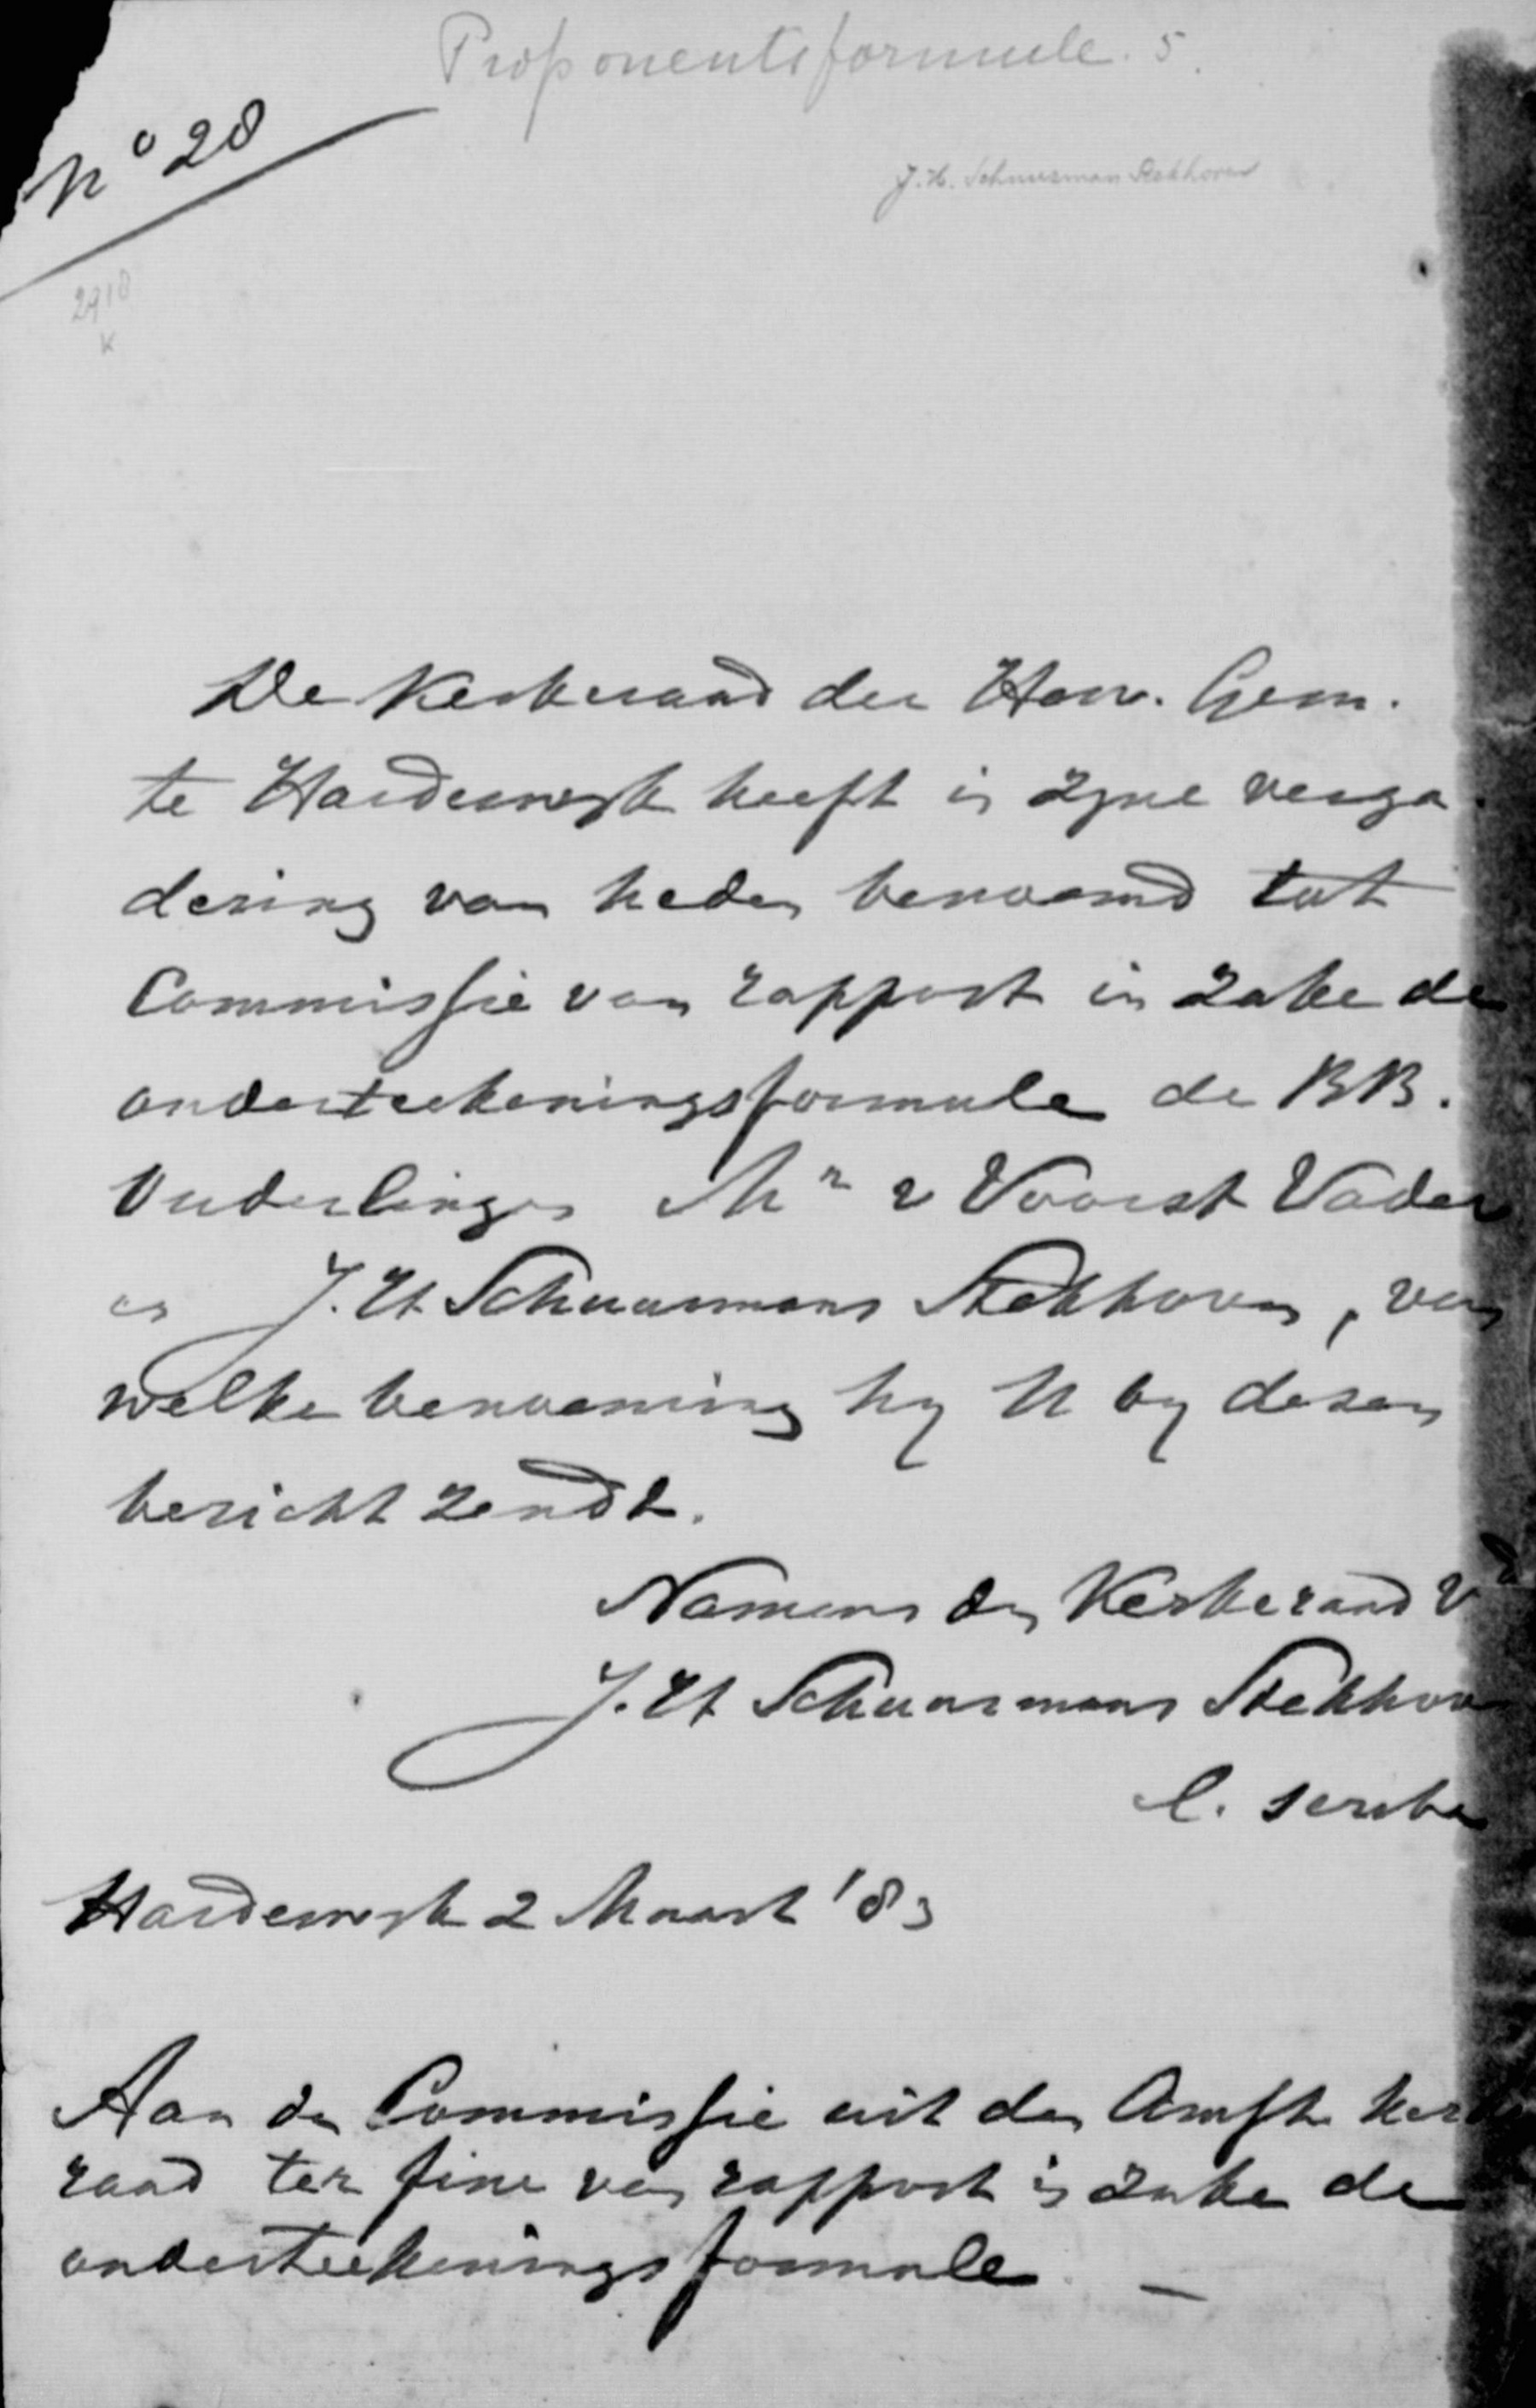 Proponentsformule. 5.
No 28
J. H. Schuurmans Stekhoven
2918
K
De Kerkeraad der Herv. Gem.
te Harderwijk heeft in zijne verga
dering van heden benoemd tot
Commissie van rapport in zake de
onderteekeningsformule de BB.
Ouderlingen Mr v Voorst Vader
en J. H. Schuurmans Stekhoven, van
welke benoeming hij U bij dezen
bericht zendt.
Namens den Kerkeraad vd
J. H. Schuurmans Stekhoven
l. scriba
Harderwijk 2 Maart '83
Aan de Commissie uit den Amst. kerk
raad ter fine van rapport in zake de
onderteekeningsformule. —